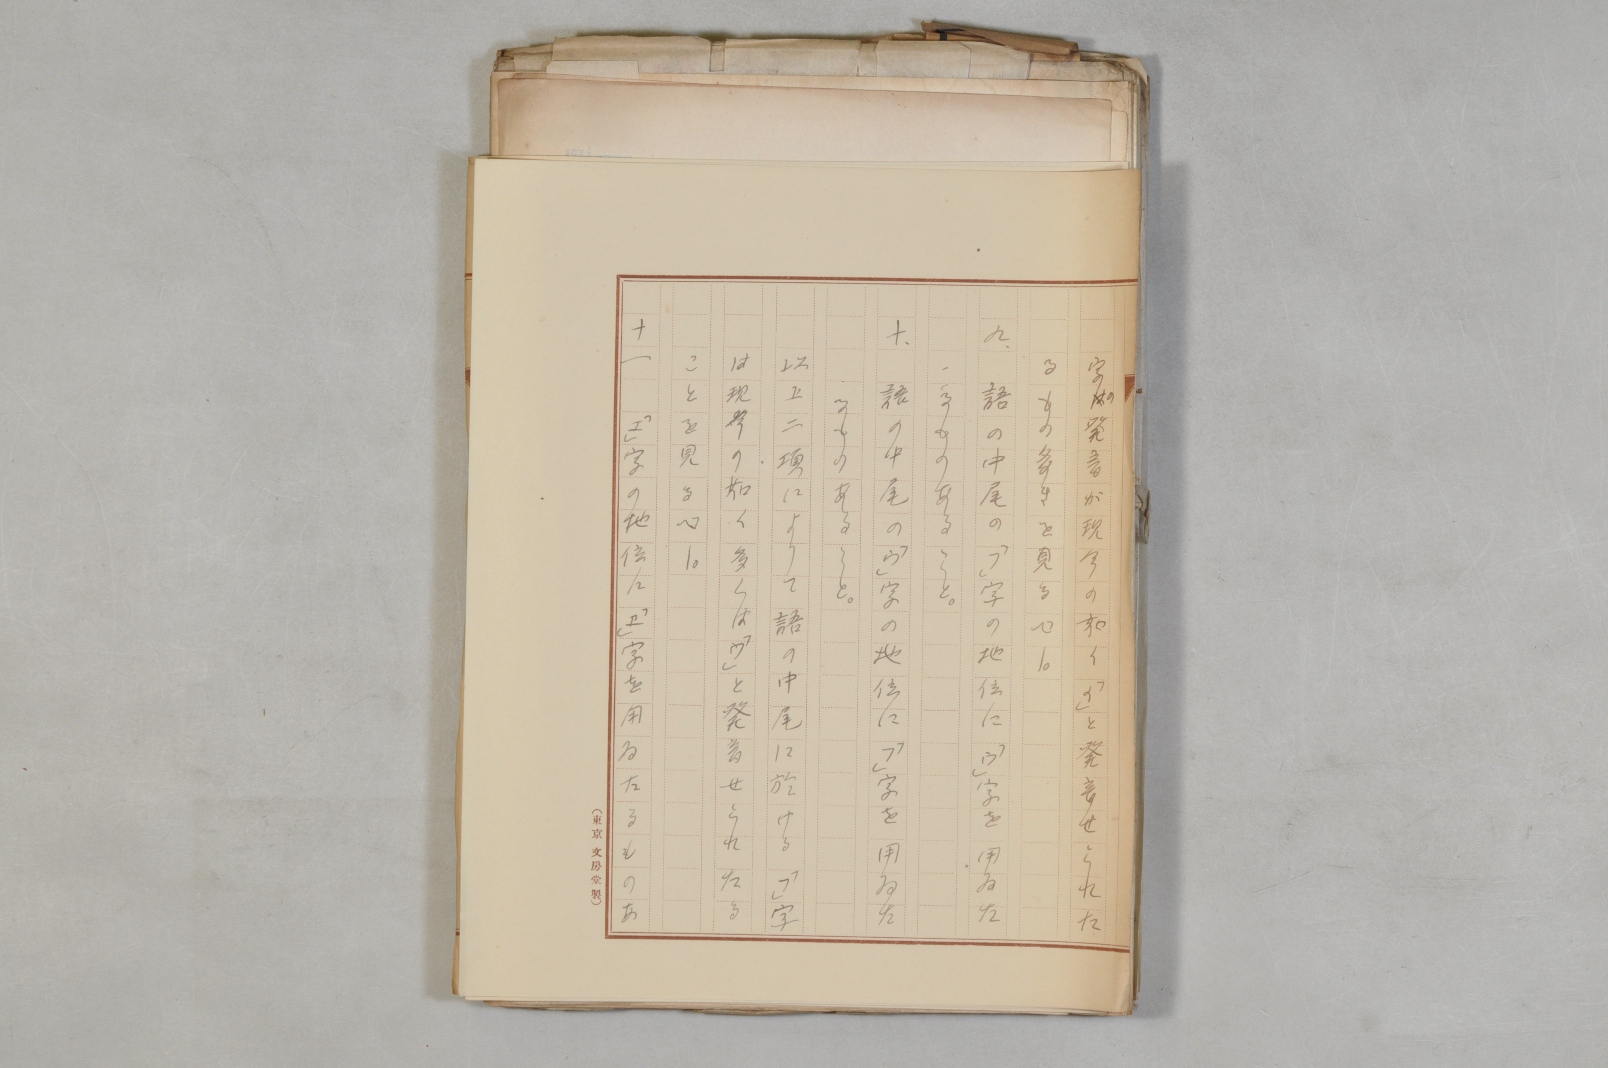 字の発音が現今の如く「イ」と発音せられた
るもの多きを見るべし。
九、語の中尾の「フ」字の地位に「ウ」字を用ゐた
るものあること。
十、語の中尾の「ウ」字の地位に「フ」字を用ゐた
るものあること。
以上二項によりて語の中尾に於ける「フ」字
は現今の如く多くは「ウ」と発音せられたる
ことを見るべし。
十一「エ」字の地位に「ヱ」字を用ゐたるものあ
(東京 文房堂製)